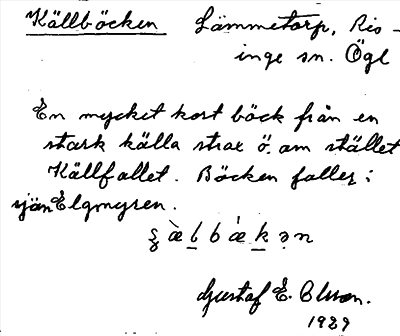 Källböcken Lämmetorp, Ris-
inge sn. Ögl
En mycket kort böck från en
stark källa strax ö. om stället
Källfallet. Böcken faller i
sjön Elgmyren.
Gustaf E. Olsson.
1929